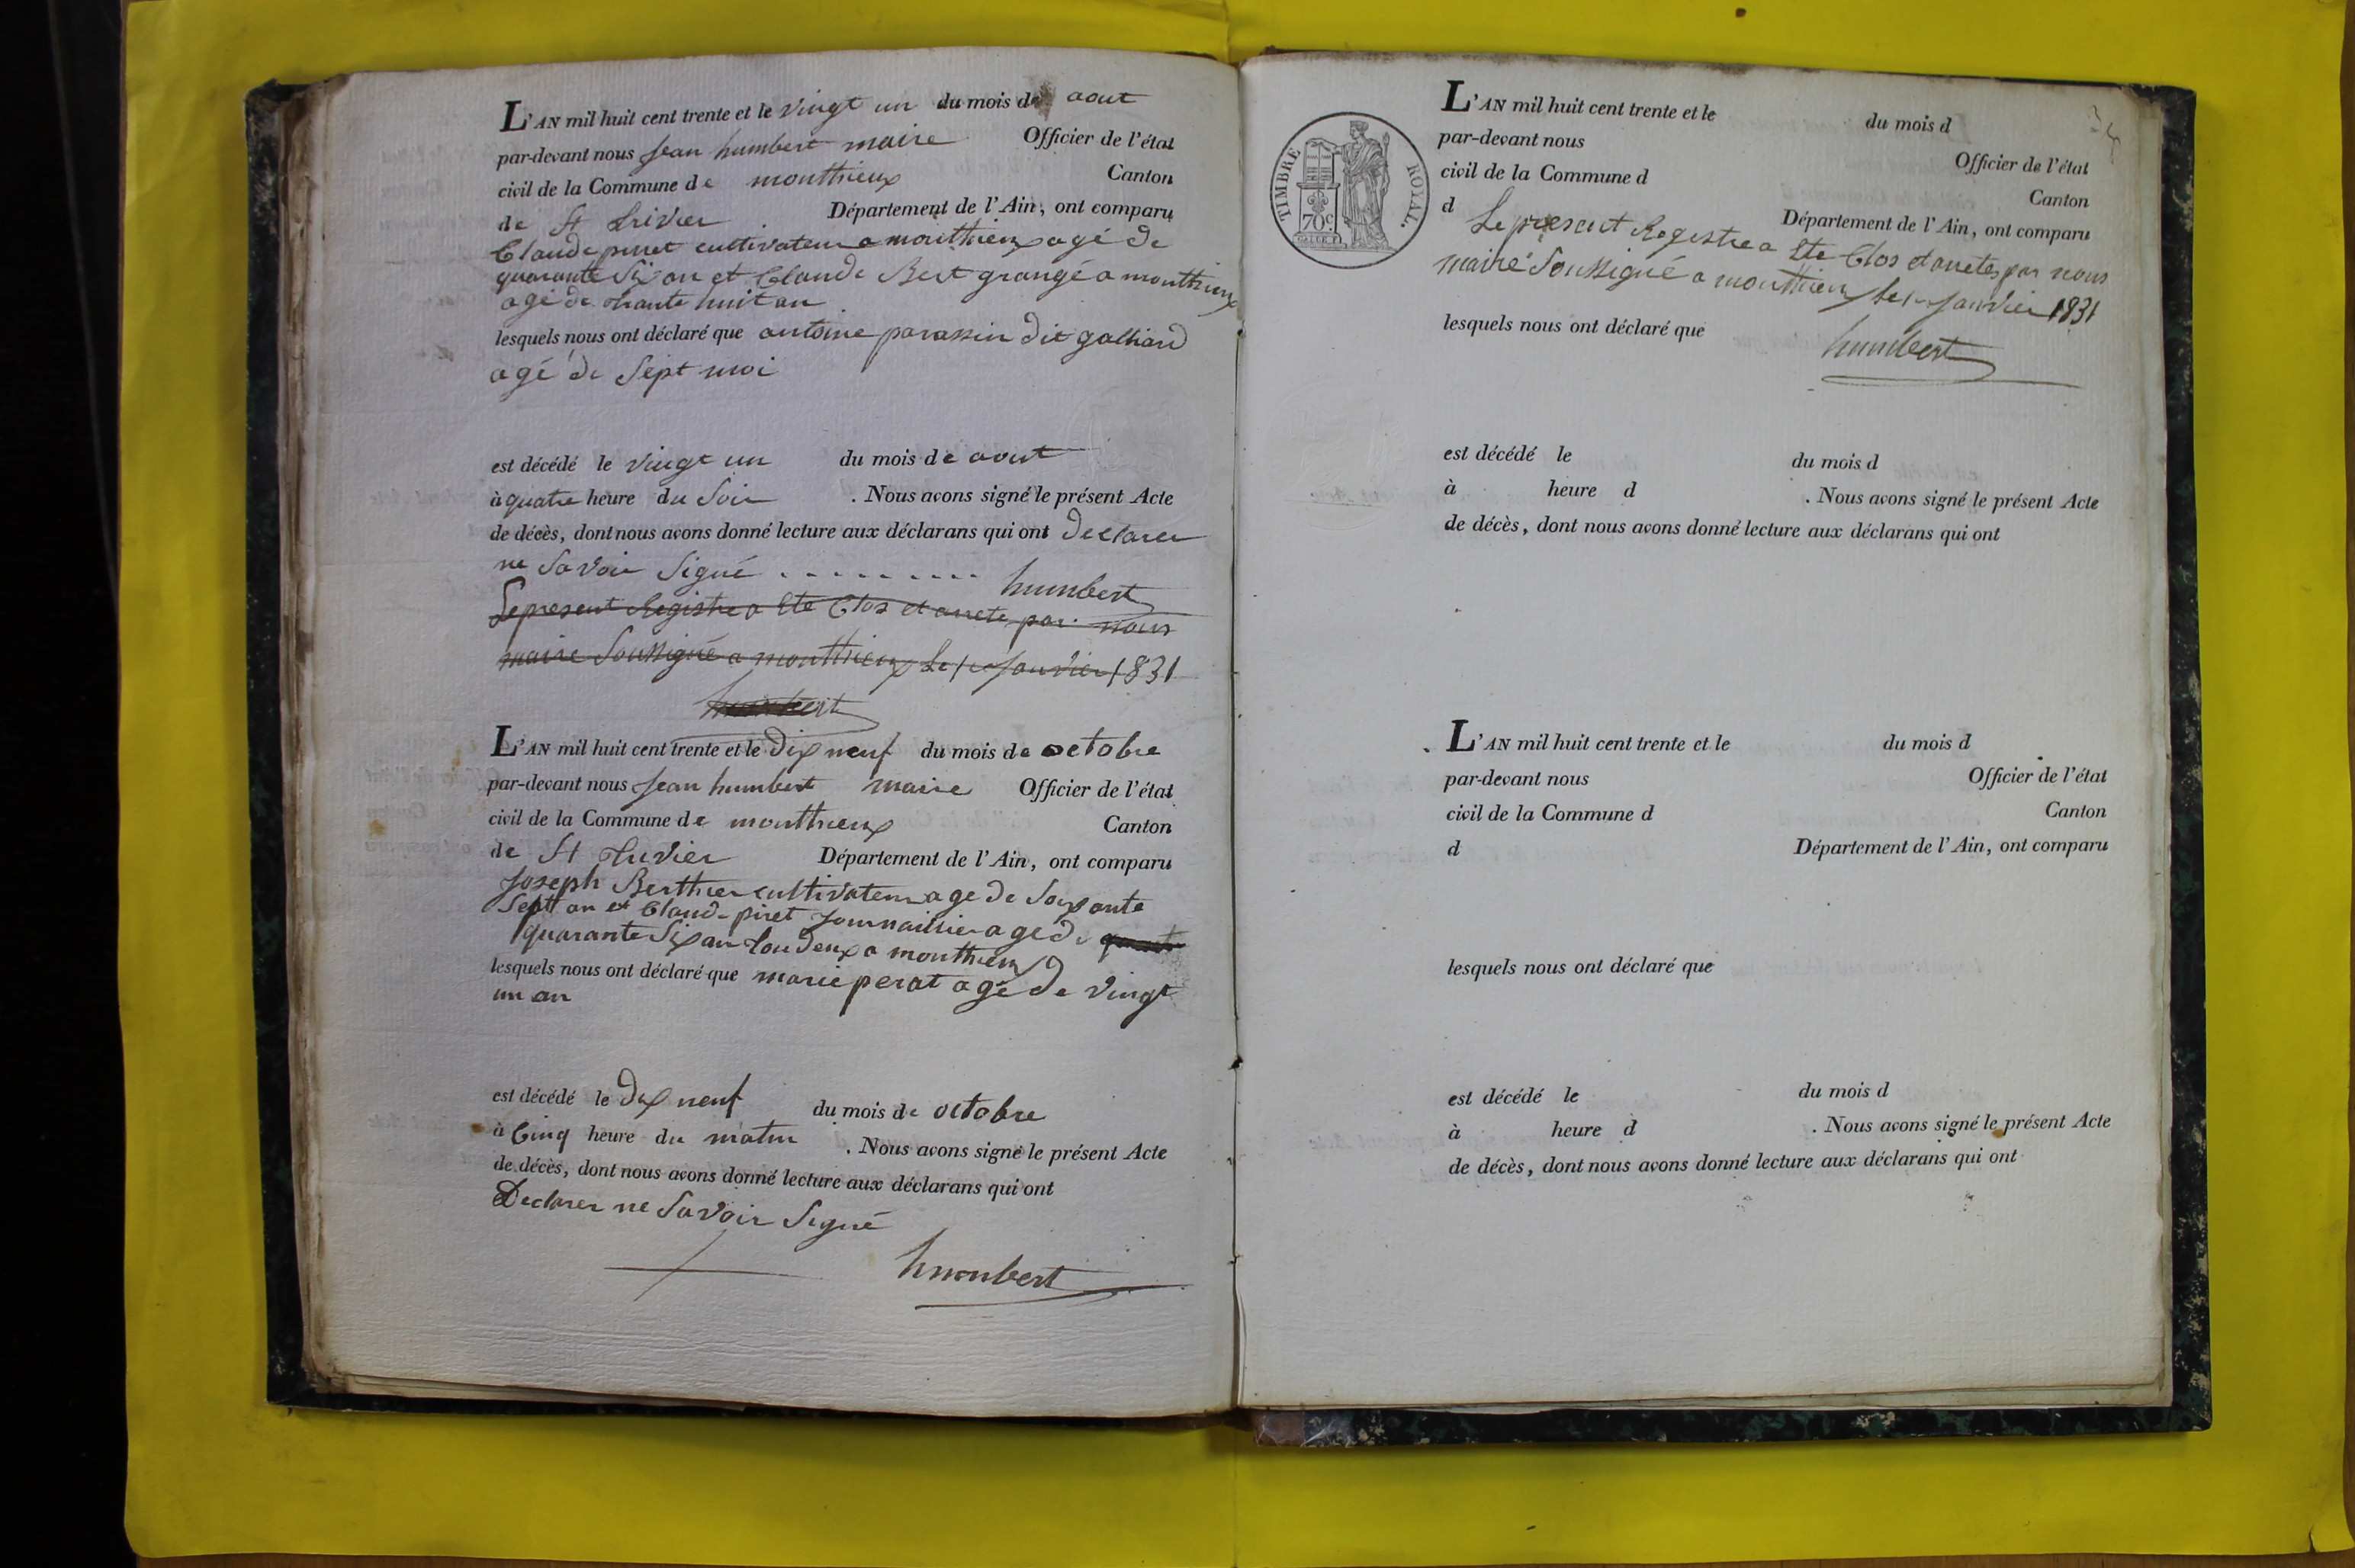 L'AN mil huit cent trente et le vingt un du mois de aout
par-devant nous Jean humbert maire Officier de l'état
civil de la Commune de monthieux Canton
de St Trivier Département de l'Ain, ont comparu
Claude piret cultivateur a monthieux agé de
quarante Six an et Claude Best grangé a monthieux
agé de trante huit an
lesquels nous ont déclaré que antoine parassin dit galliard
agé de Sept moi
est décédé le vingt un du mois de aout
à quatre heure du Soir . Nous avons signé le présent Acte
de décès, dont nous avons donné lecture aux déclarans qui ont declarer
ne Savoir Signé . . . . . . . . . humbert
Le present Registre a Ete Clos et arrete par nous
maire Soussigné a monthieux Le 1er Janvier 1831
humbert
L'AN mil huit cent trente et le Dix neuf du mois de octobre
par-devant nous Jean humbert maire Officier de l'état
civil de la Commune de monthieux Canton
de St Trivier Département de l'Ain, ont comparu
Joseph Berthier cultivateur age de Soixante
Sept an et Claude piret Journaillier age de
quarante Six an tou deux a monthieux
lesquels nous ont déclaré que marie perat agé de vingt
un an
est décédé le Dix neuf du mois de octobre
à Cinq heure du matin . Nous avons signé le présent Acte
de décès, dont nous avons donné lecture aux déclarans qui ont
Declarer ne Savoir Signé
humbert
TIMBRE ROYAL.
70c
L'AN mil huit cent trente et le du mois d
par-devant nous Officier de l'état
civil de la Commune d Canton
d Département de l'Ain, ont comparu
Le present Registre a Ete Clos et arretes par nous
maire Soussigné a monthieux Le 1er Janvier 1831
lesquels nous ont déclaré que
humbert
est décédé le du mois d
à heure d . Nous avons signé le présent Acte
de décès, dont nous avons donné lecture aux déclarans qui ont
L'AN mil huit cent trente et le du mois d
par-devant nous Officier de l'état
civil de la Commune d Canton
d Département de l'Ain, ont comparu
lesquels nous ont déclaré que
est décédé le du mois d
à heure d . Nous avons signé le présent Acte
de décès, dont nous avons donné lecture aux déclarans qui ont